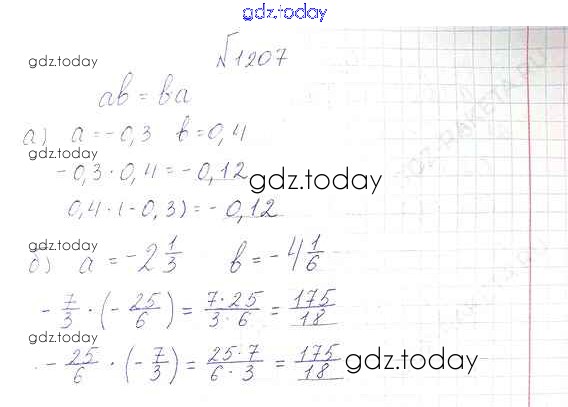 gdz.today
№1207
gdz.today
ab = ba
а) a = -0,3 b = 0,4
gdz.today
-0,3 · 0,4 = -0,12
gdz.today
0,4 · (-0,3) = -0,12
gdz.today
б) a = -2 1/3 b = -4 1/6
-7/3 · (-25/6) = 7·25/3·6 = 175/18
gdz.today
-25/6 · (-7/3) = 25·7/6·3 = 175/18
gdz.today
gdz.today